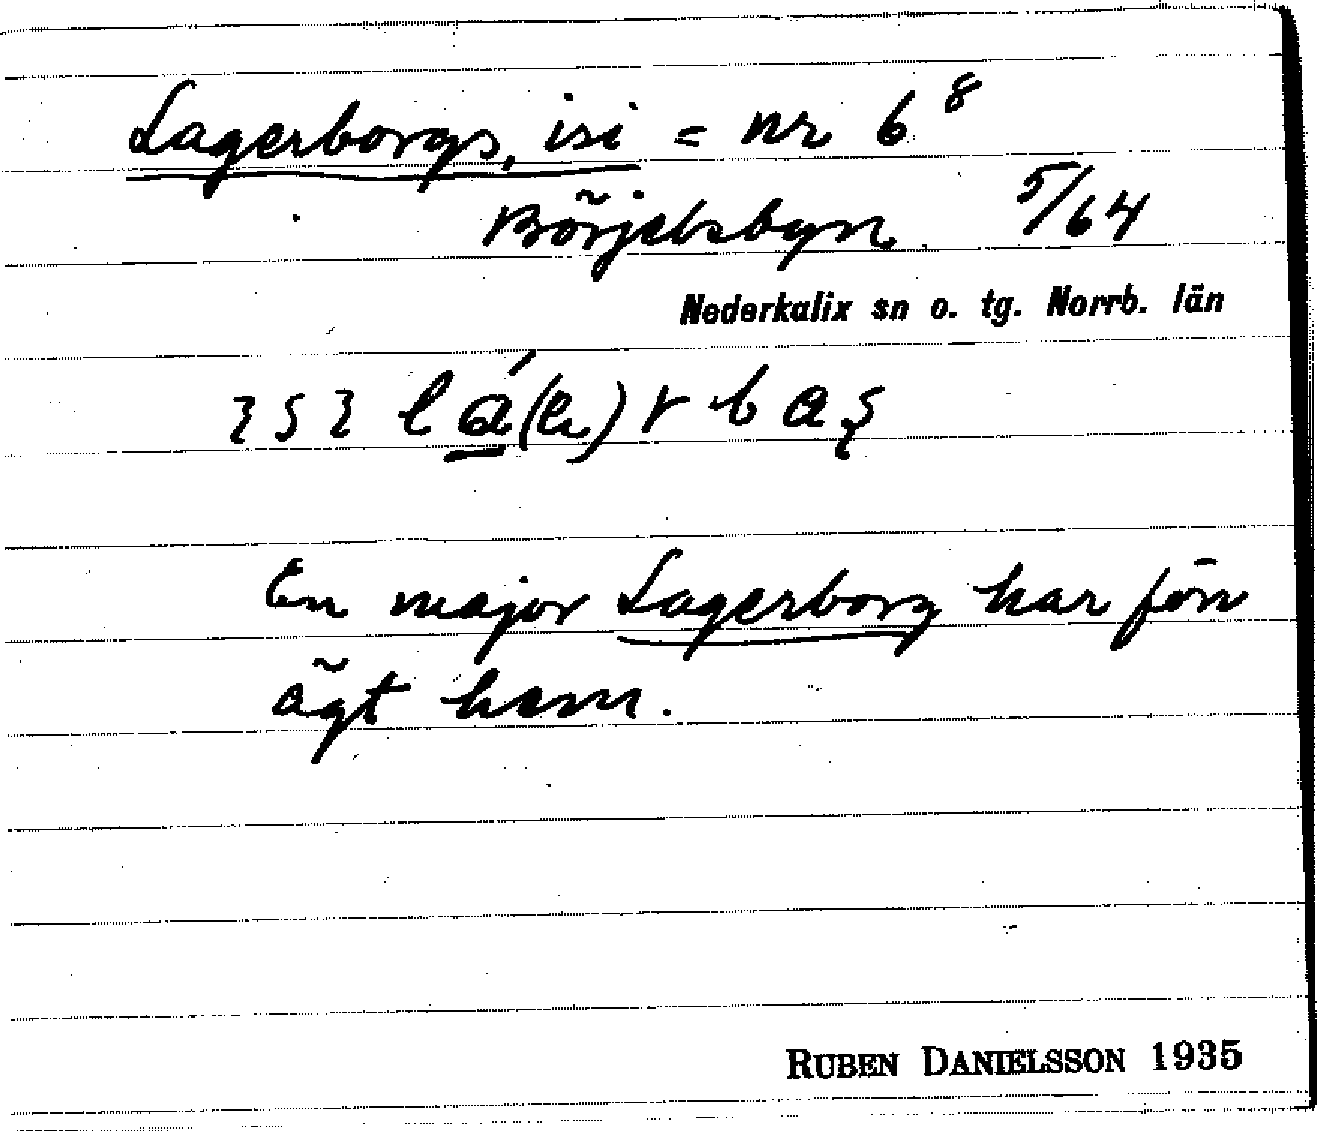 Lagerborgs, isi = nr 6⁸
Börjelsbyn. 5/64
Nederkalix sn o. tg. Norrb. län
En major Lagerborg har förr
ägt hem.
RUBEN DANIELSSON 1935